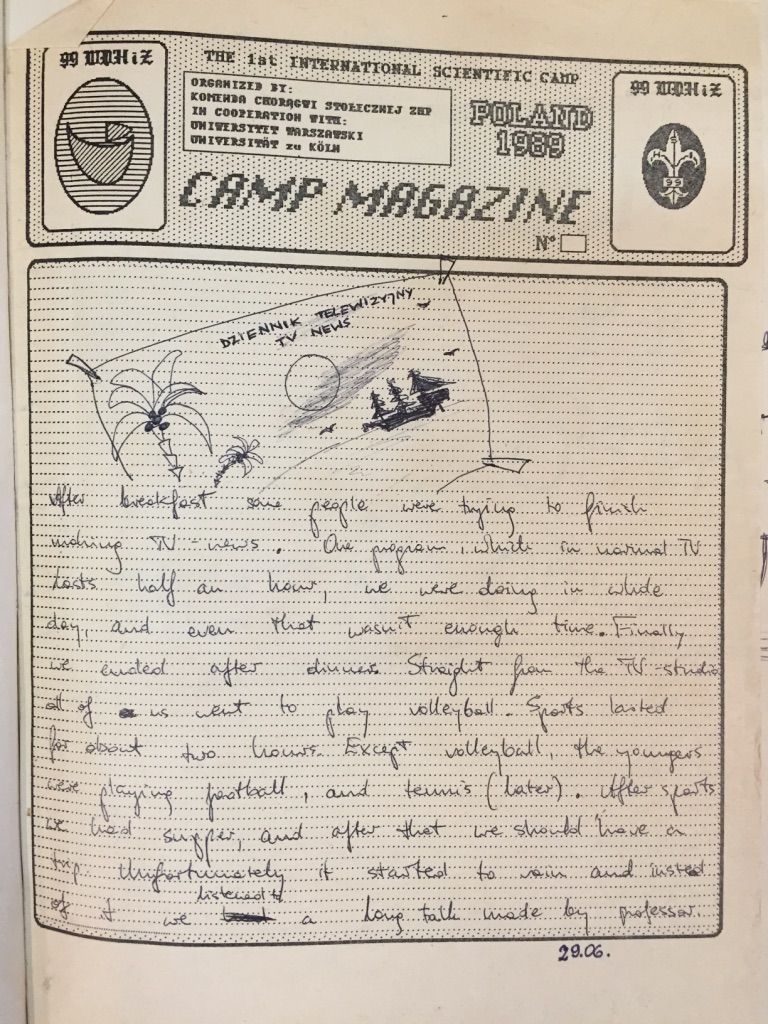 99 WDHiZ
THE 1st INTERNATIONAL SCIENTIFIC CAMP
ORGANIZED BY:
KOMENDA CHORĄGWI STOŁECZNEJ ZHP
IN COOPERATION WITH:
UNIWERSYTET WARSZAWSKI
UNIVERSITÄT zu KÖLN
POLAND
1989
99 WDHiZ
99
CAMP MAGAZINE
N°
DZIENNIK TELEWIZYJNY
TV NEWS
After breakfast some people were trying to finish
making TV-news. One program, which in normal TV
lasts half an hour, we were doing in whole
day, and even that wasn't enough time. Finally
we ended after dinner. Straight from the TV-studio
all of us went to play volleyball. Sports lasted
for about two hours. Except volleyball, the youngers
were playing football, and tennis (later). After sports
we had supper, and after that we should have a
trip. Unfortunately it started to rain and insted
of it we listened to a long talk made by professor.
29.06.